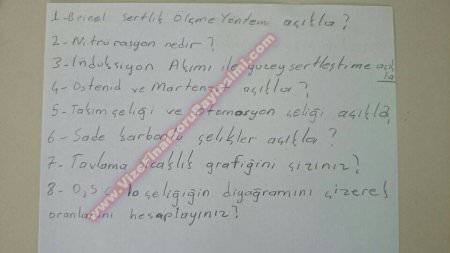 1-Brinel Sertlik Ölçme Yöntemi açıkla?
2-Nitrürasyon nedir?
3-İndüksiyon Akımı ile yüzey sertleştime açıkla
4-Ostenid ve Martenzit açıkla?
5-Takım çeliği ve otomasyon çeliği açıkla
6-Sade karbonlu çelikler açıkla?
7-Tavlama sıcaklık grafiğini çiziniz?
8-0,5 çeliğiğin diyağramını çizerek
oranlarını hesaplayınız?
www.VizeFinalSoruPaylasimi.com